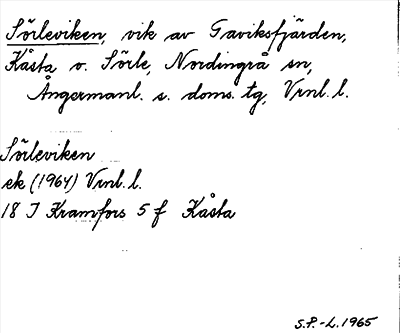 Sörleviken, vik av Gaviksfjärden,
Kåsta o. Sörle, Nordingrå sn,
Ångermanl. s. doms. tg, Vrnl. l.
Sörleviken
ek (1964) Vrnl. l.
18 I Kramfors 5 f Kåsta
S.P.-L. 1965